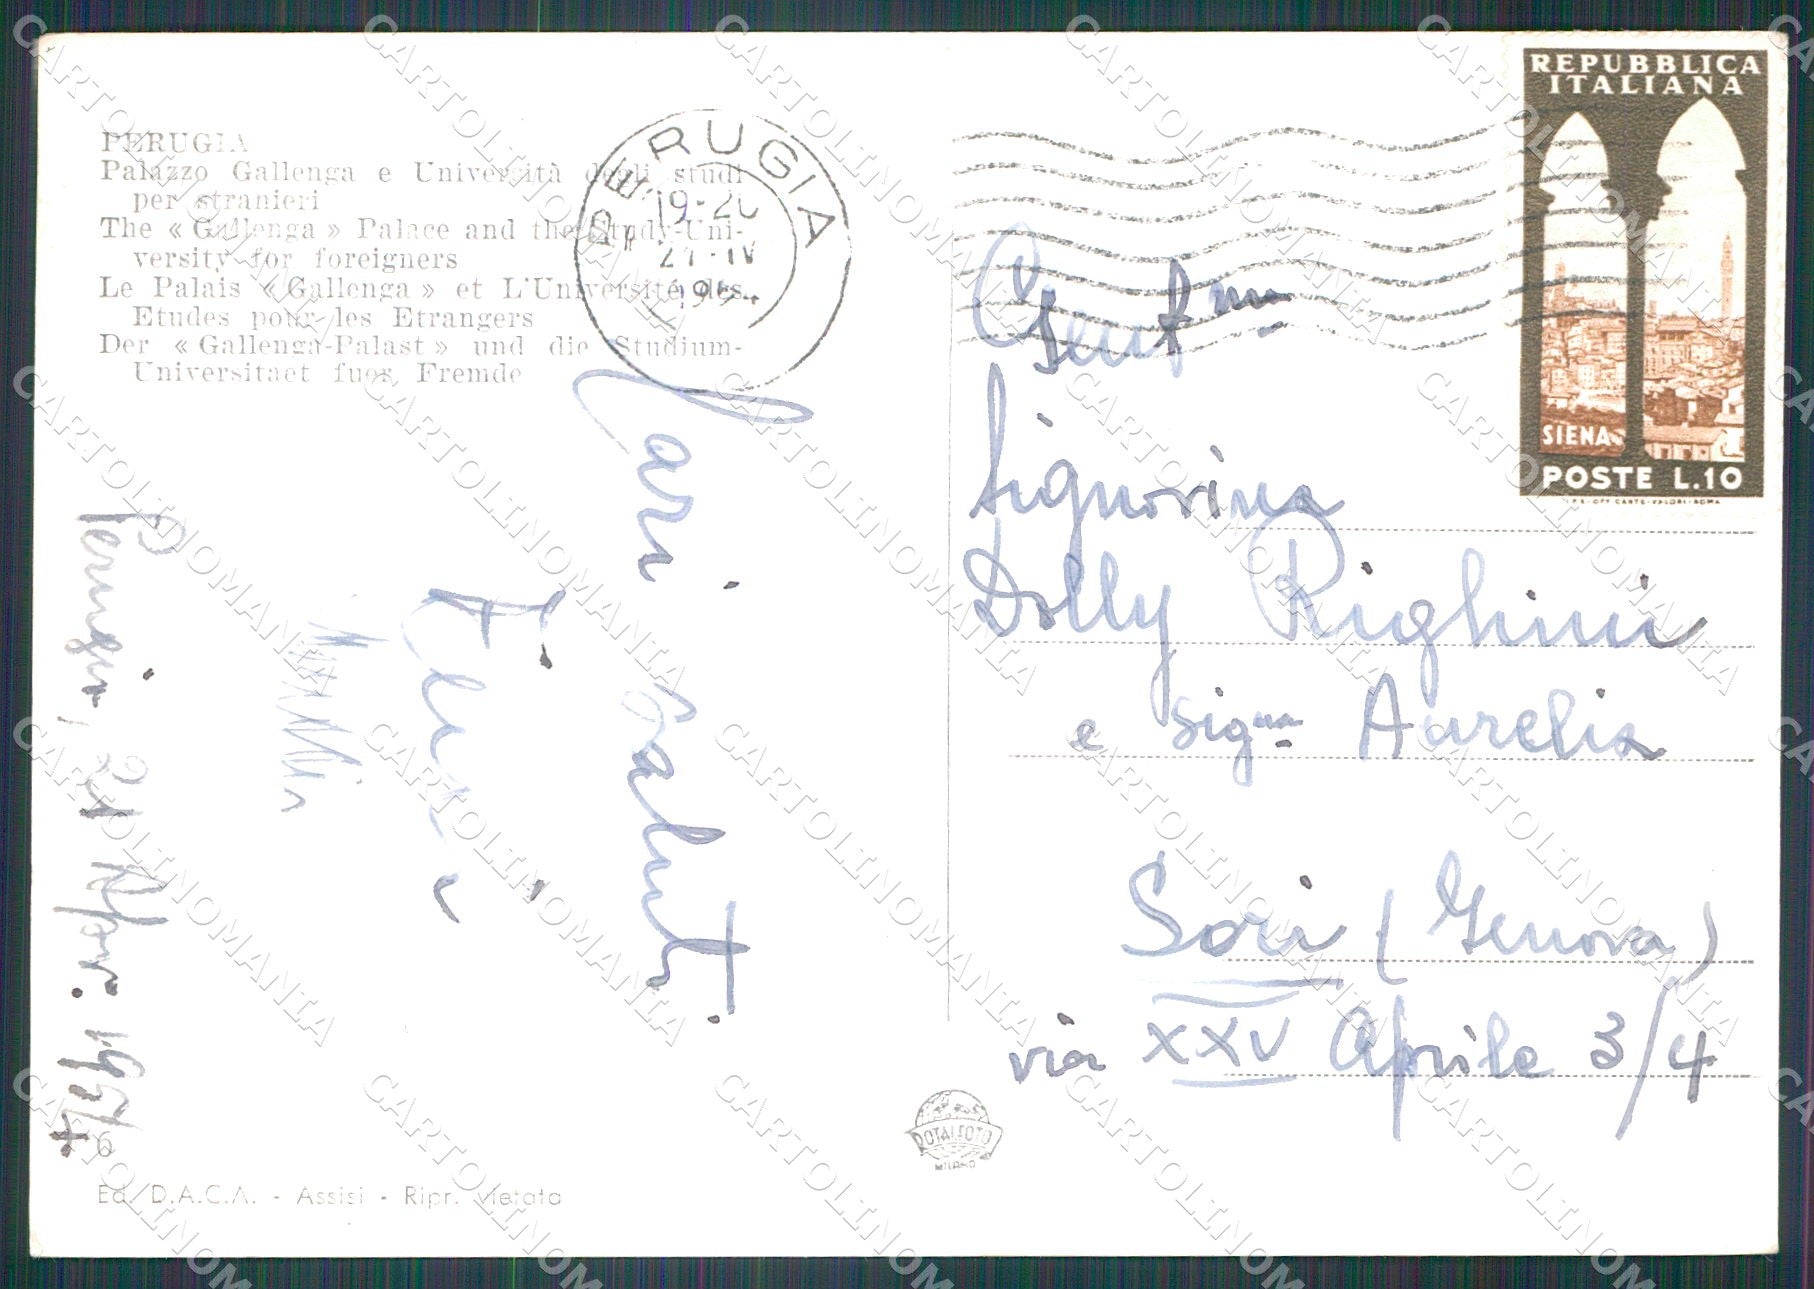 PERUGIA
Palazzo Gallenga e Università degli studi
per stranieri
The « Gallenga » Palace and the Study-Uni-
versity for foreigners
Le Palais « Gallenga » et L'Université des
Etudes pour les Etrangers
Der « Gallenga-Palast » und die Studium-
Universitaet fuer Fremde
PERUGIA
19-20
IV
REPUBBLICA
ITALIANA
SIENA
POSTE L.10
I.P.S.-OFF. CARTE-VALORI-ROMA
Gent.me
Signorina
Dolly Righini
e sig.na Aurelia
Sori (Genova)
via XXV Aprile 3/4
Cari saluti
Perugia, 21 Apr. 1954
6
Ed. D.A.C.A. - Assisi - Ripr. vietata
ROTALFOTO
MILANO
CARTOLINOMANIA